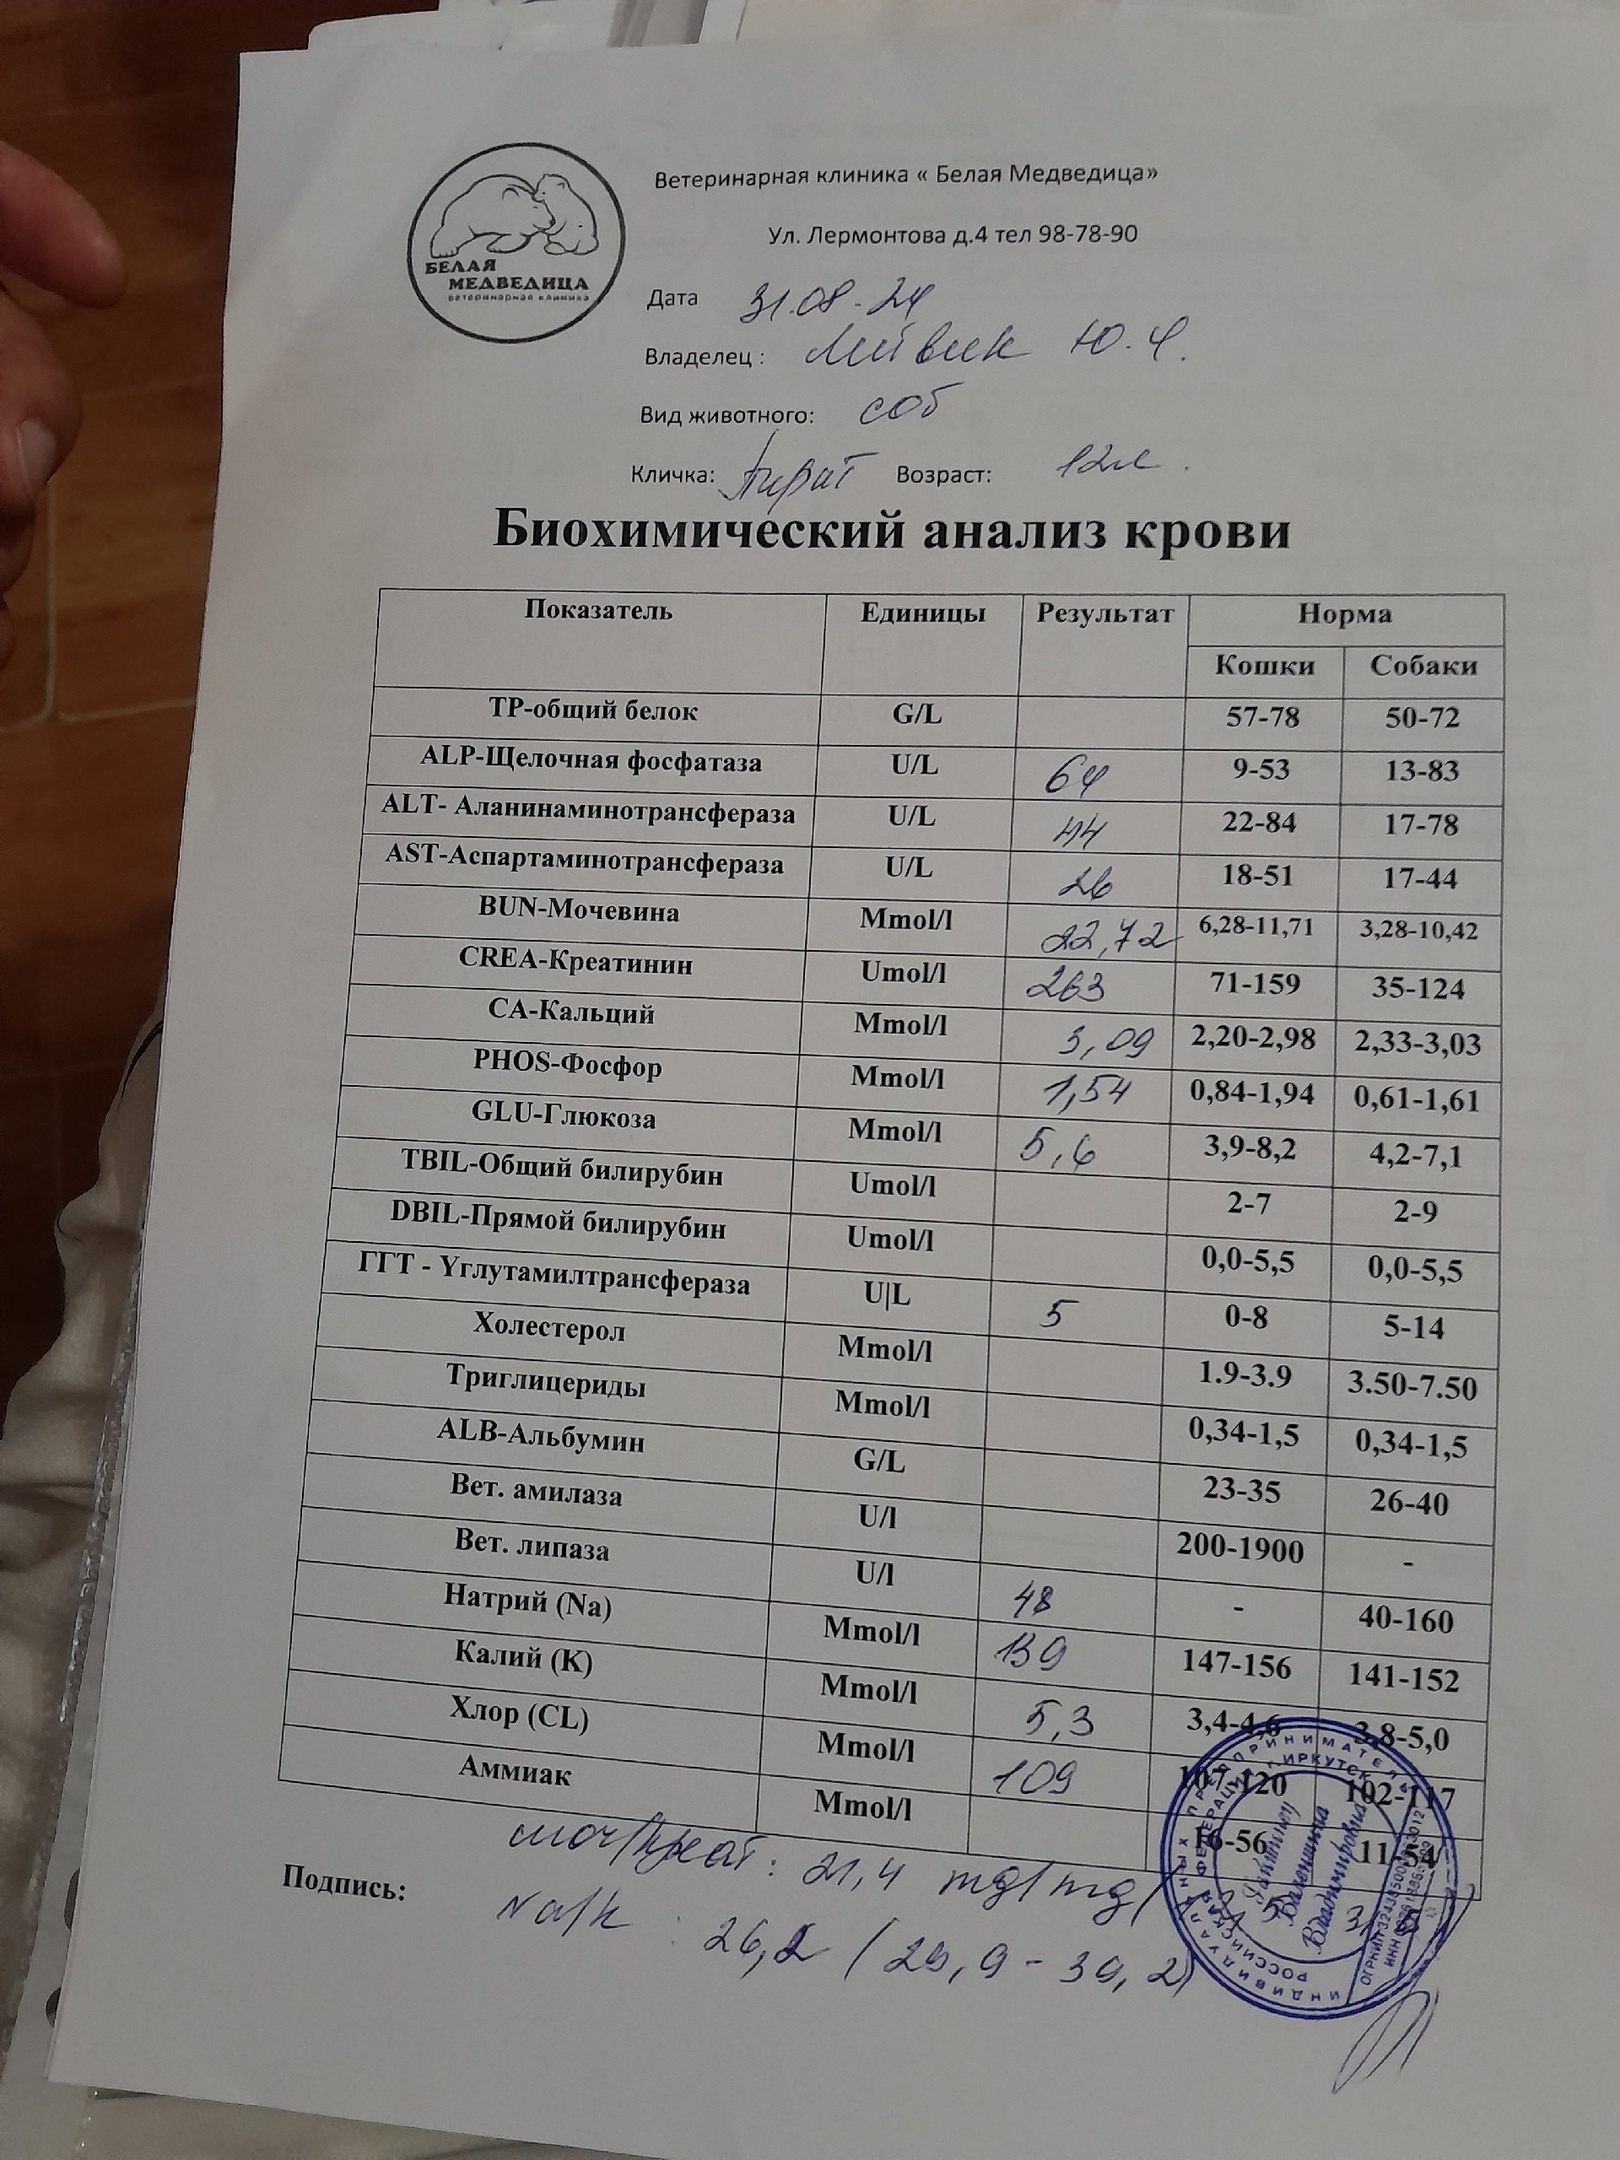 Ветеринарная клиника « Белая Медведица»
Ул. Лермонтова д.4 тел 98-78-90
БЕЛАЯ
МЕДВЕДИЦА
ветеринарная клиника
Дата 31.08.24
Владелец : Ю.
Вид животного: соб
Кличка: Пират Возраст: 12л.
Биохимический анализ крови
Показатель Единицы Результат Норма
Кошки Собаки
TP-общий белок G/L 57-78 50-72
ALP-Щелочная фосфатаза U/L 64 9-53 13-83
ALT- Аланинаминотрансфераза U/L 44 22-84 17-78
AST-Аспартаминотрансфераза U/L 26 18-51 17-44
BUN-Мочевина Mmol/l 22,72 6,28-11,71 3,28-10,42
CREA-Креатинин Umol/l 263 71-159 35-124
CA-Кальций Mmol/l 3,09 2,20-2,98 2,33-3,03
PHOS-Фосфор Mmol/l 1,54 0,84-1,94 0,61-1,61
GLU-Глюкоза Mmol/l 5,6 3,9-8,2 4,2-7,1
TBIL-Общий билирубин Umol/l 2-7 2-9
DBIL-Прямой билирубин Umol/l 0,0-5,5 0,0-5,5
ГГТ - Yглутамилтрансфераза U|L 5 0-8 5-14
Холестерол Mmol/l 1.9-3.9 3.50-7.50
Триглицериды Mmol/l 0,34-1,5 0,34-1,5
ALB-Альбумин G/L 23-35 26-40
Вет. амилаза U/l 200-1900 -
Вет. липаза U/l 48 - 40-160
Натрий (Na) Mmol/l 139 147-156 141-152
Калий (K) Mmol/l 5,3 3,4-4,6 3,8-5,0
Хлор (CL) Mmol/l 109 107-120 102-117
Аммиак Mmol/l 16-56 11-54
моч/креат: 21,4 mg/mg
Подпись:
Na/K : 26,2 (29,9 - 39,2)
ИНДИВИДУАЛЬНЫХ ПРЕДПРИНИМАТЕЛЬ
РОССИЙСКАЯ ФЕДЕРАЦИЯ г. ИРКУТСК
Валентина
Владимировна